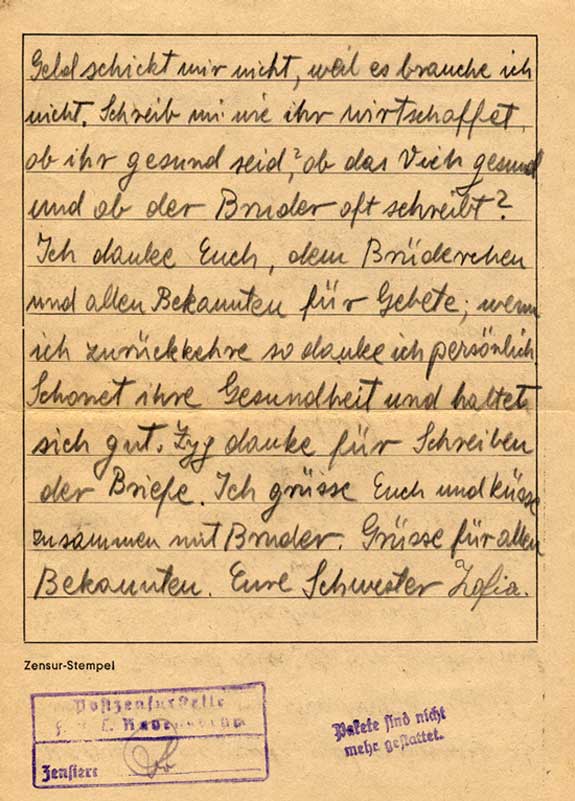 Geld schickt mir nicht, weil es brauche ich
nicht. Schreib mir wie ihr wirtschaffet,
ob ihr gesund seid, ob das Vieh gesund
und ob der Bruder oft schreibt?
Ich danke Euch, dem Brüderchen
und allen Bekannten für Gebete; wenn
ich zurückkehre so danke ich persönlich.
Schonet ihre Gesundheit und haltet
sich gut. Zyg danke für Schreiben
der Briefe. Ich grüsse Euch und küsse
zusammen mit Bruder. Grüsse für allen
Bekannten. Eure Schwester Zofia.
Zensur-Stempel
Postzensurstelle
Zensiert
Pakete sind nicht
mehr gestattet.